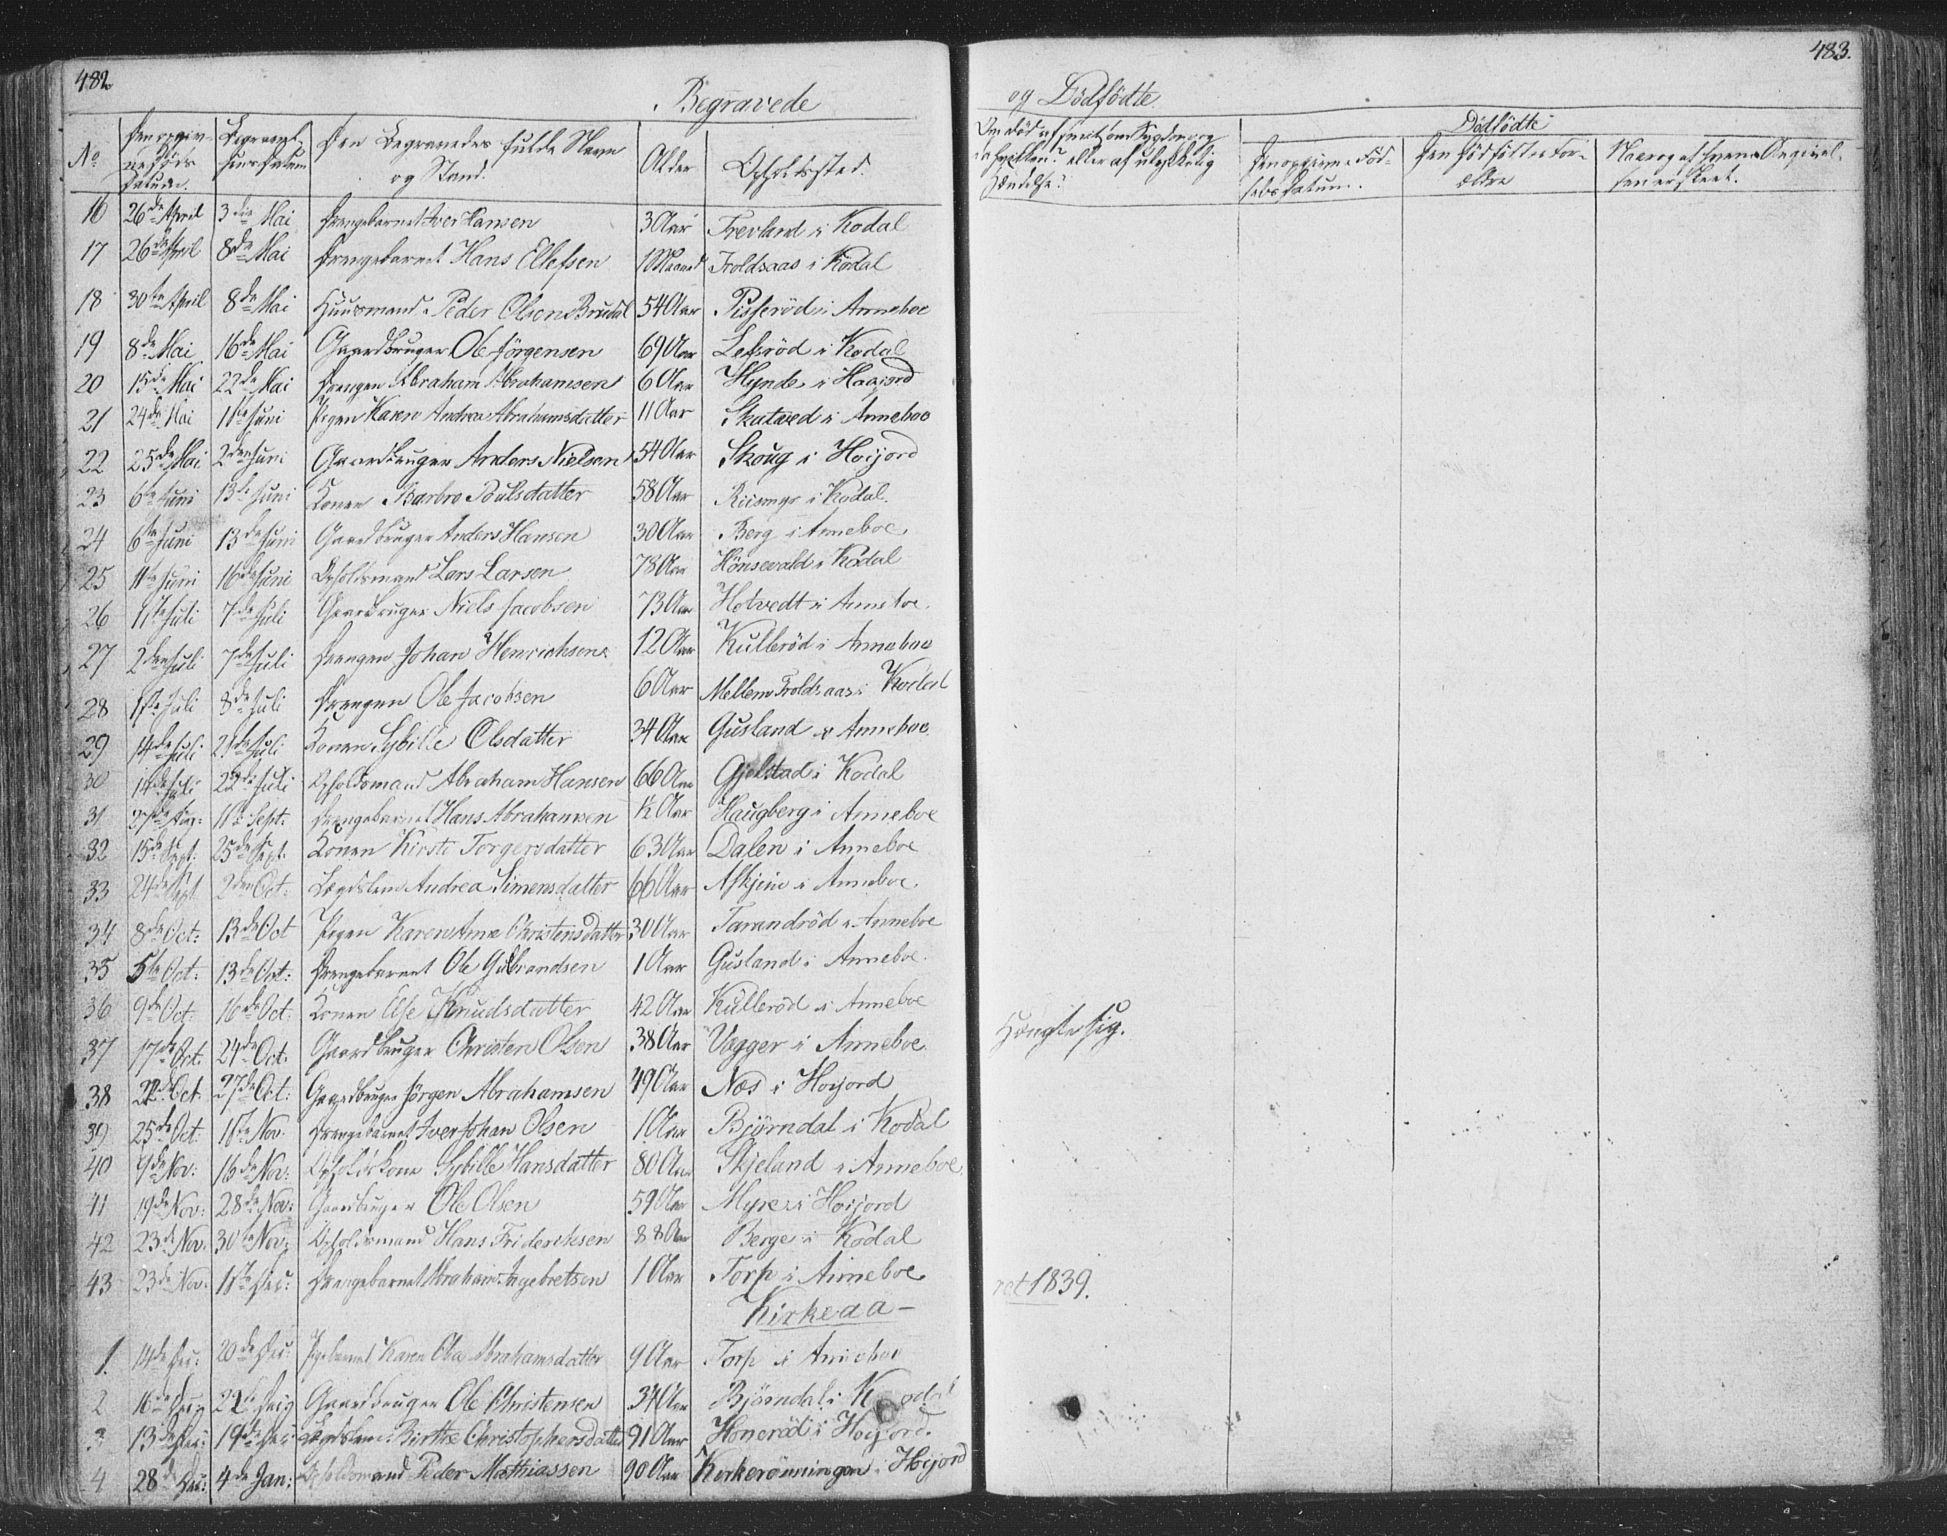 482
483.
Begravede
og Dödfödte
No
Den opgivne Döds Datum.
Begravelses Datum
Den Begravedes fulde Navn og Stand.
Alder
Opholdssted.
Dödfödte
16 26de April 3die Mai Drengebarnet Iver Hansen 3 Aar Trevland i Kodal
17 26de April 8de Mai Drengebarnet Hans Ellefsen 1 Maaned Troldsaas i Kodal
18 30te April 8de Mai Huusmand Peder Olsen Brudal 54 Aar Pisseröd i Anneboe
19 8de Mai 16de Mai Gaardbruger Ole Jörgensen 69 Aar Lefsröd i Kodal
20 15de Mai 22de Mai Drengen Abraham Abrahamsen 6 Aar Hynde i Haajord
21 24de Mai 1ste Juni Pigen Karen Andrea Abrahamsdatter 11 Aar Skatved i Anneboe
22 25de Mai 2den Juni Gaardbruger Anders Nielsen 54 Aar Skoug i Hoijord
23 6te Juni 13de Juni Konen Barbro Poulsdatter 58 Aar Riismyr i Kodal.
24 6te Juni 13de Juni Gaardbruger Anders Hansen 30 Aar Berg i Anneboe
25 11te Juni 16de Juni Opholdsmand Lars Larsen 78 Aar Hönsevald i Kodal
26 1ste Juli 7de Juli Gaardbruger Niels Jacobsen 73 Aar Hotvedt i Anneboe.
27 2den Juli 7de Juli Drengen Johan Henrichsen 12 Aar Kulleröd i Anneboe
28 1ste Juli 8de Juli Drengen Ole Jacobsen 6 Aar Mellem Troldsaas i Kodal
29 14de Juli 21de Juli Konen Sybille Olsdatter 34 Aar Gusland i Anneboe
30 14de Juli 22de Juli Opholdsmand Abraham Hansen 66 Aar Gjelstad i Kodal
31 27de Aug: 11te Sept: Drengebarnet Hans Abrahamsen ½ Aar Haugberg i Anneboe
32 15de Sept: 25de Sept: Konen Kirste Torgersdatter 63 Aar Dalen i Anneboe
33 24de Sept 2den Oct: Lægdslem Andrea Simensdatter 66 Aar Askjem i Anneboe.
34 8de Oct: 13de Oct Pigen Karen Anne Christensdatter 30 Aar Tarandröd i Anneboe
35 5te Oct: 13de Oct: Drengebarnet Ole Gulbrandsen 1 Aar Gusland i Anneboe.
36 9de Oct: 16de Oct: Konen Else Knudsdatter 42 Aar Kulleröd i Anneboe
37 17de Oct: 24de Oct: Gaardbruger Christen Olsen 38 Aar Vægger i Anneboe. Hængte sig.
38 22de Oct. 27de Oct: Gaardbruger Jörgen Abrahamsen 49 Aar Næs i Hoijord
39 25de Oct: 1ste Nov. Drengebarnet Iver Johan Olsen 1 Aar Bjørndal i Kodal
40 9de Nov: 16de Nov: Opholdskone Sybille Hansdatter 80 Aar Skjeland i Anneboe
41 19de Nov: 28de Nov: Gaardbruger Ole Olsen 59 Aar Myre i Hoijord
42 23de Nov: 30te Nov: Opholdsmand Hans Friderichsen 88 Aar Berge i Kodal
43 23de Nov: 1ste Dec: Drengebarnet Abraham Ingebretsen 1 Aar Torp i Anneboe
Kirkeaa-
ret 1839.
1. 14de Dec: 20de Dec: Pigebarnet Karen Olea Abrahamsdatter 9 Aar Torp i Anneboe
2 16de Dec: Gaardbruger Ole Christensen 34 Aar Bjørndal i Kodal
3 13de Dec: 19de Dec: Lægdslem Birthe Christophersdatter 91 Aar Honeröd i Hoijord.
4 28de Dec: 4de Jan: Opholdsmand Peder Mathiassen 90 Aar Kerkerönningen i Hoijord